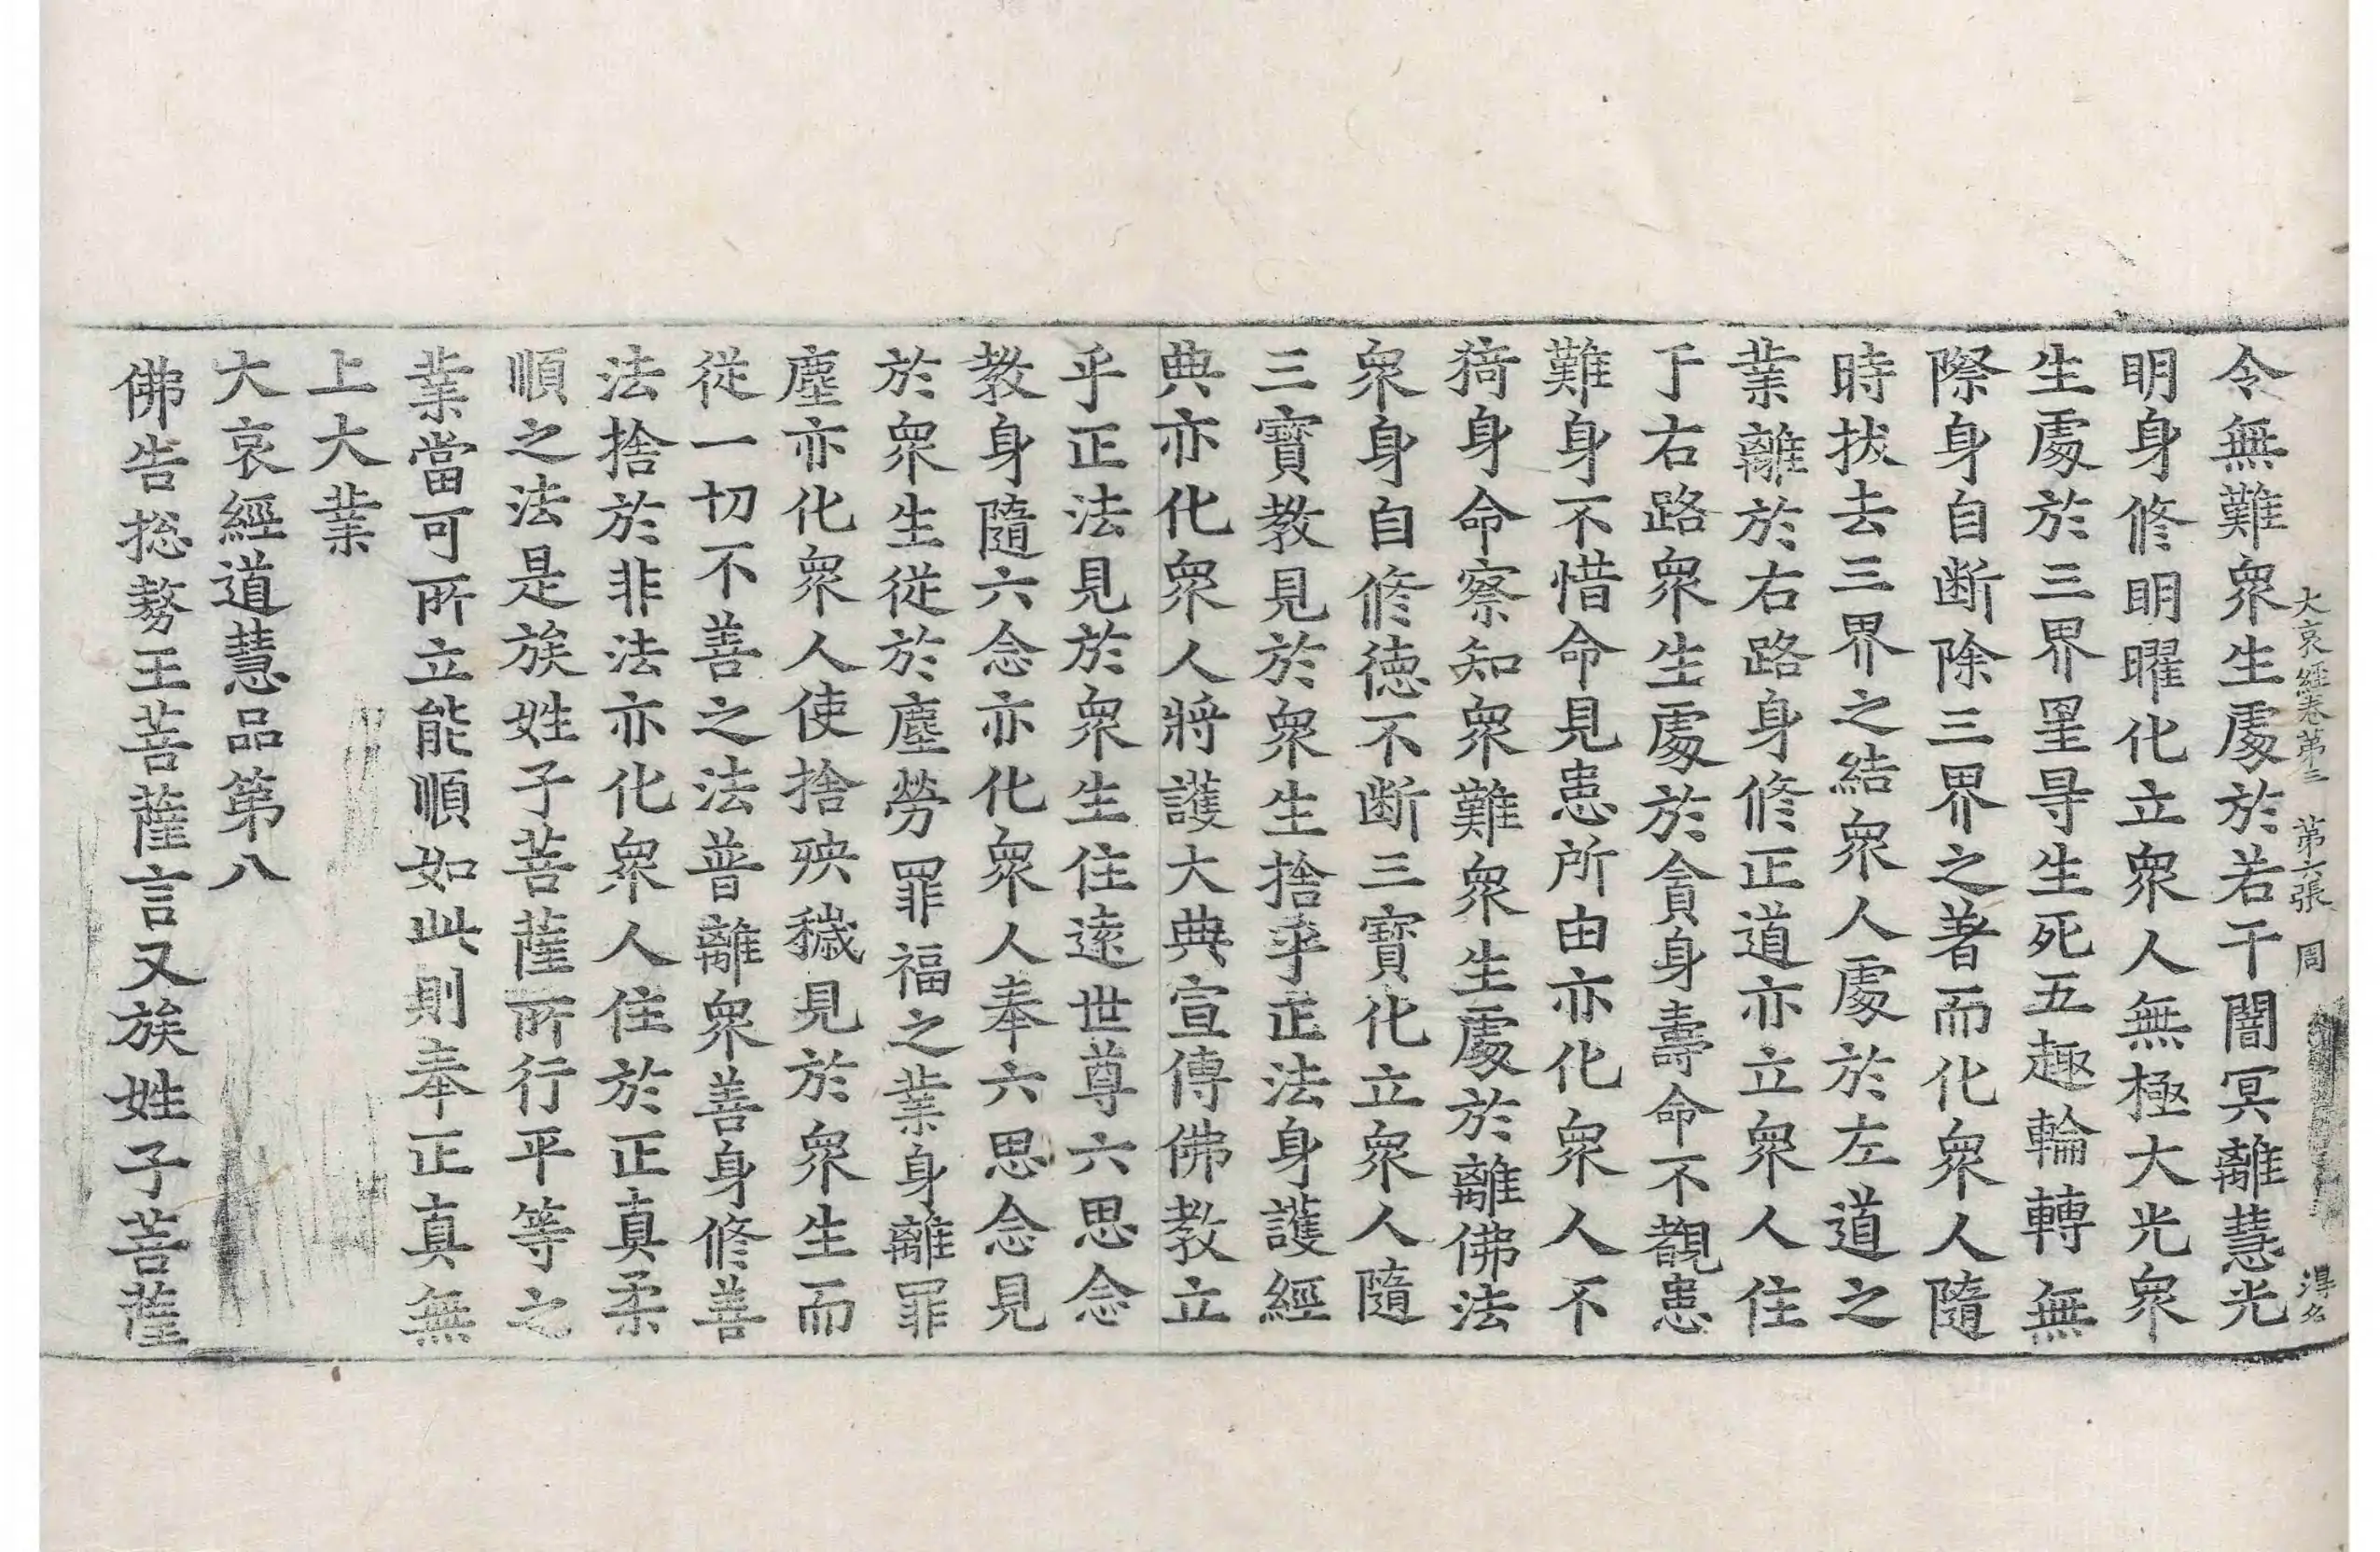 大哀經卷第三　第六張　周　得名
令無難衆生處於若干闇冥離慧光
明身修明曜化立衆人無極大光衆
生處於三界罣㝵生死五趣輪轉無
際身自断除三界之著而化衆人隨
時拔去三界之結衆人處於左道之
業離於右路身修正道亦立衆人住
于右路衆生處於貪身壽命不觀患
難身不惜命見患所由亦化衆人不
猗身命察知衆難衆生處於離佛法
衆身自修德不断三寶化立衆人隨
三寶教見於衆生捨乎正法身護經
典亦化衆人將護大典宣傳佛教立
乎正法見於衆生住遠世尊六思念
教身隨六念亦化衆人奉六思念見
於衆生從於塵勞罪福之業身離罪
塵亦化衆人使捨殃穢見於衆生而
從一切不善之法普離衆善身修善
法捨於非法亦化衆人住於正真柔
順之法是族姓子菩薩所行平等之
業當可所立能順如此則奉正真無
上大業
大哀經道慧品第八
佛告捴𠢕王菩薩言又族姓子菩薩